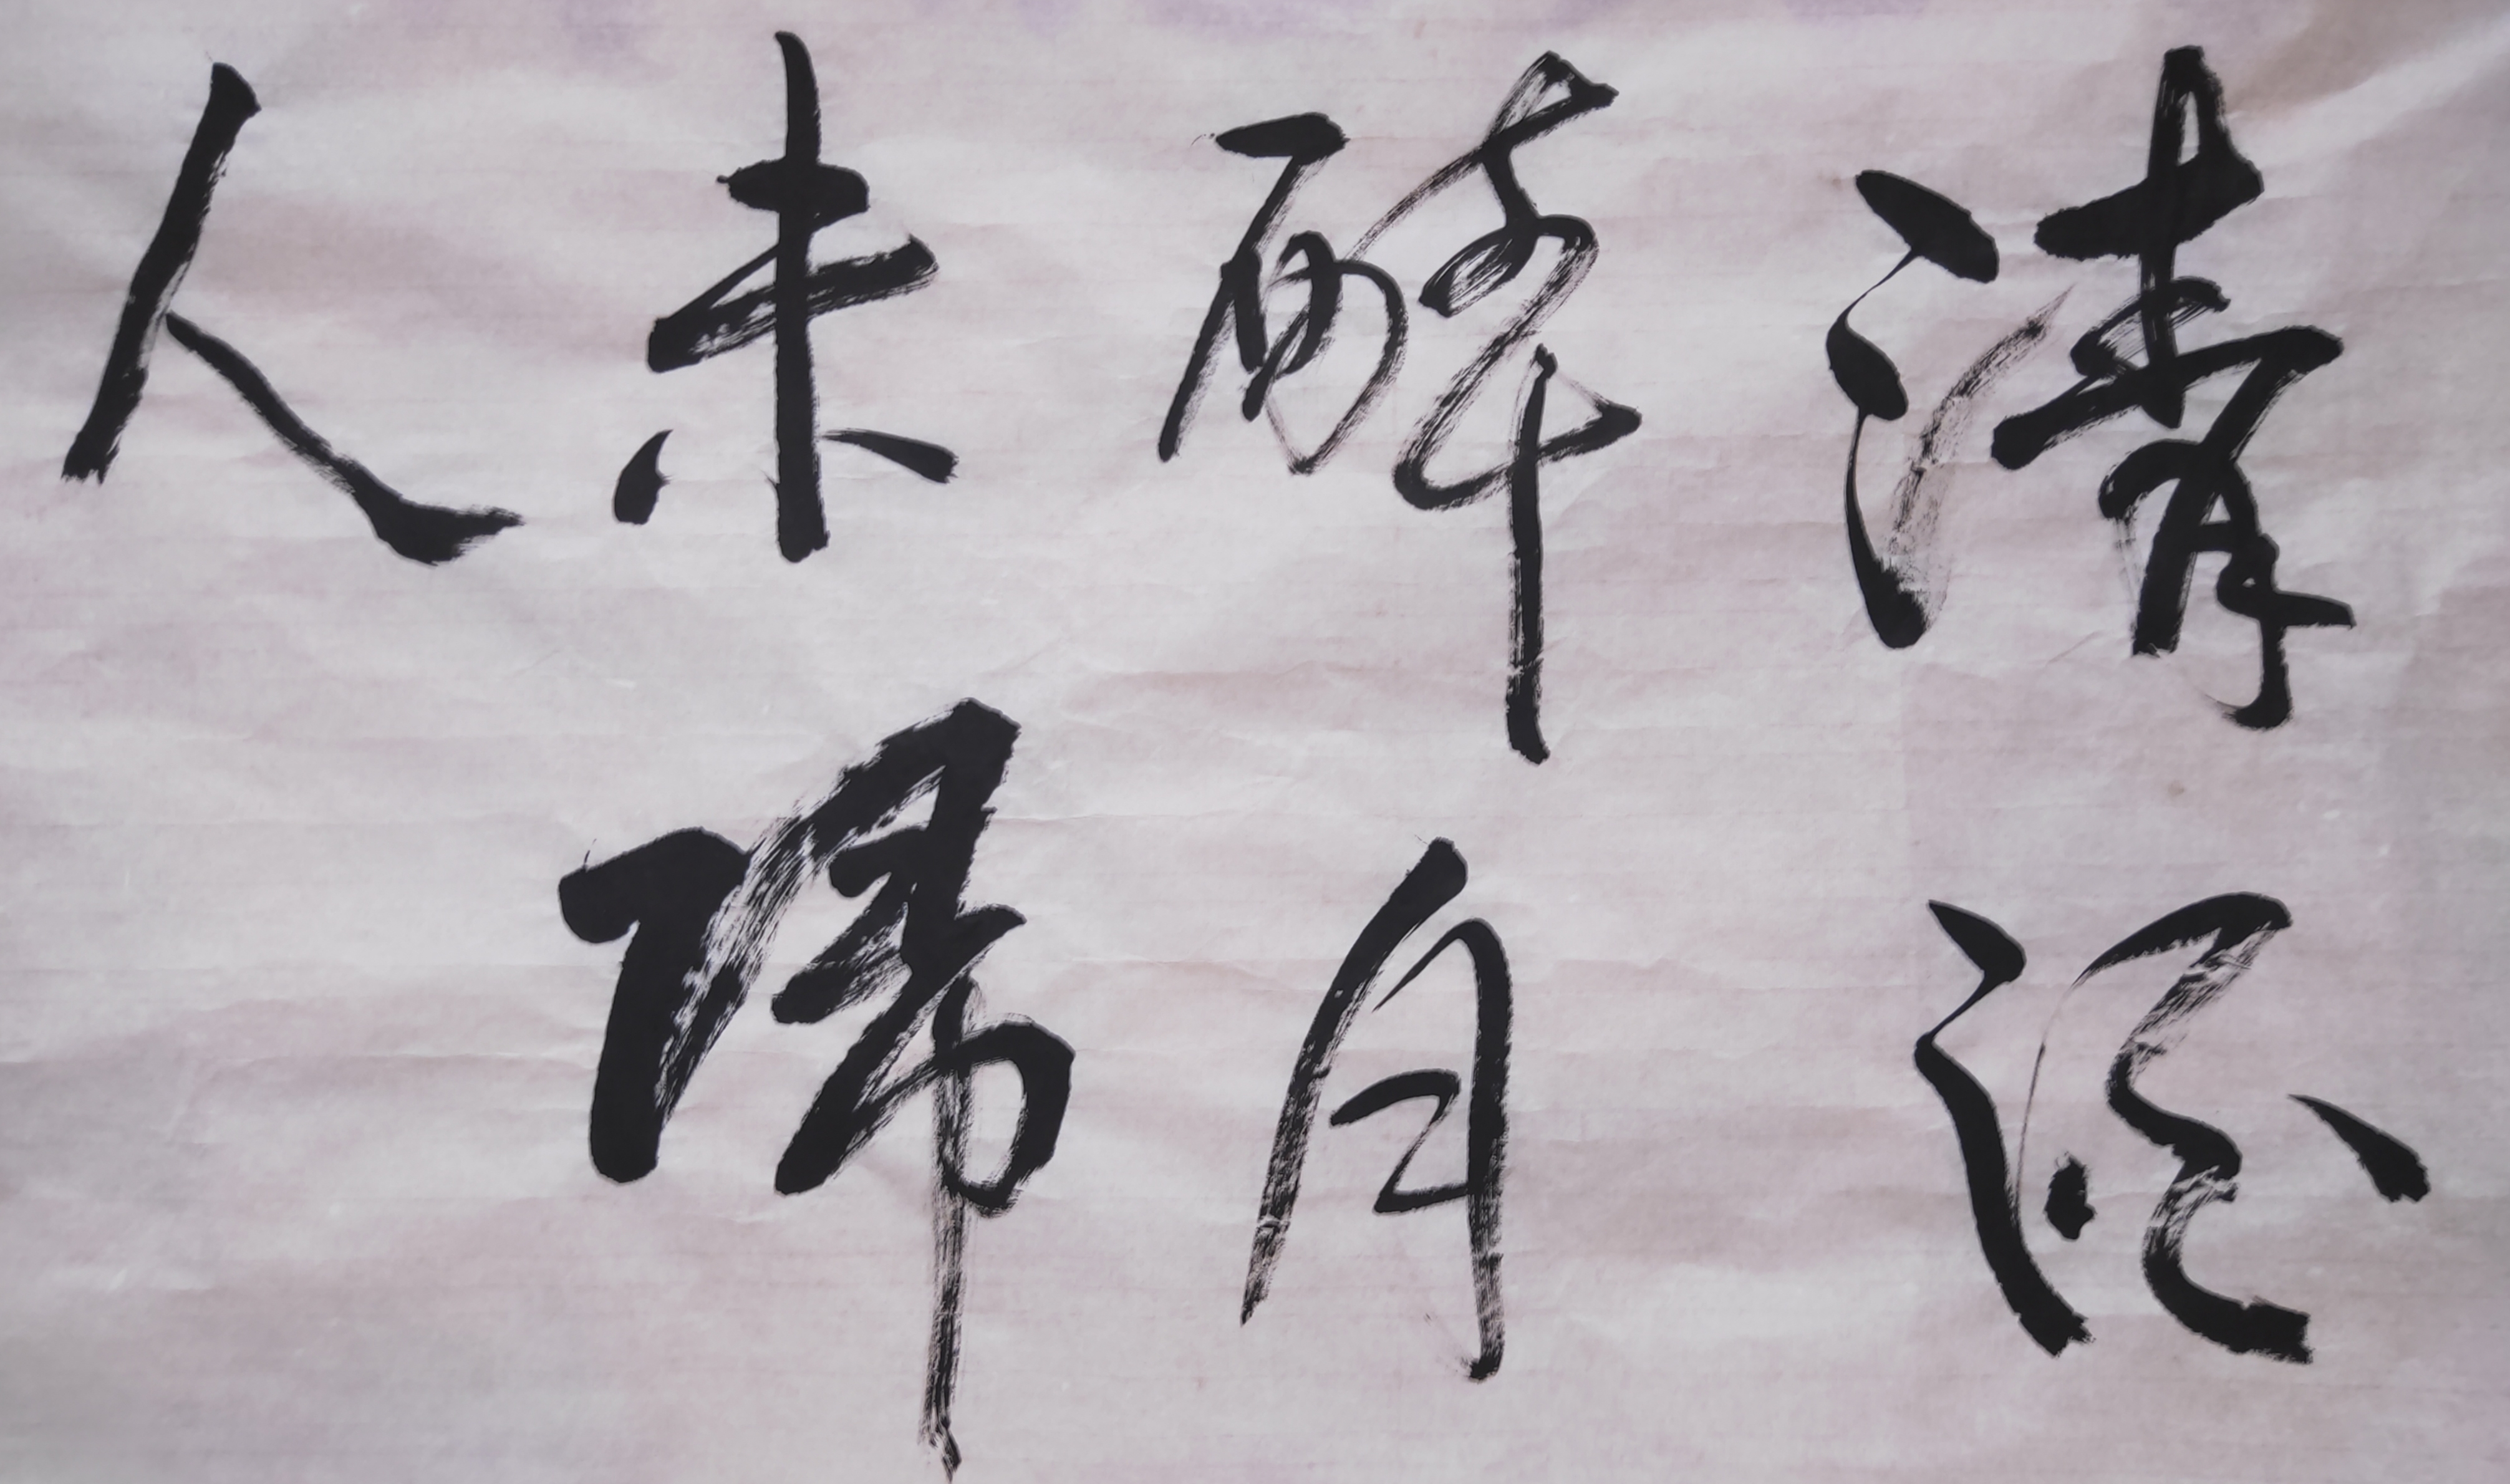 清源
醉月
未歸
人